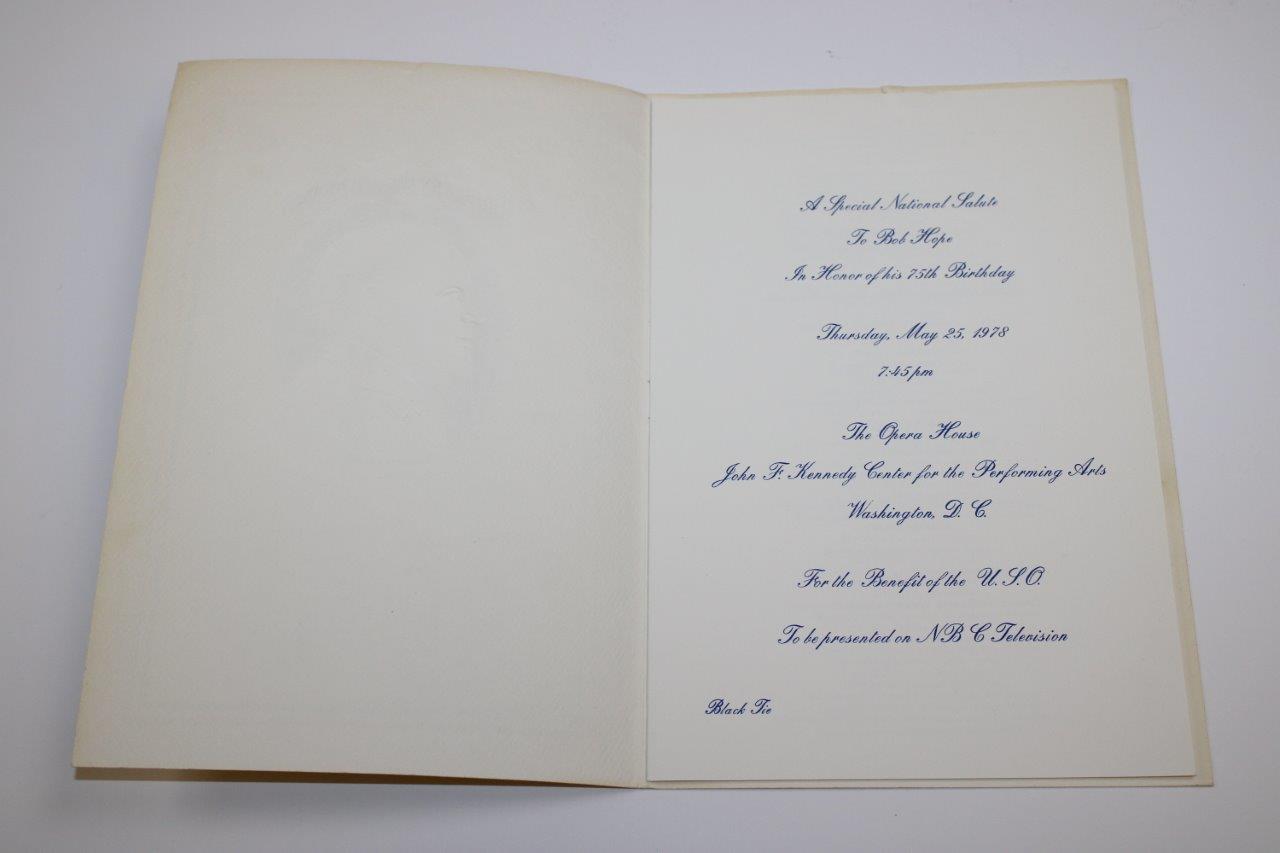 A Special National Salute
To Bob Hope
In Honor of his 75th Birthday
Thursday, May 25, 1978
7:45 pm
The Opera House
John F. Kennedy Center for the Performing Arts
Washington, D. C.
For the Benefit of the U. S. O.
To be presented on NBC Television
Black Tie